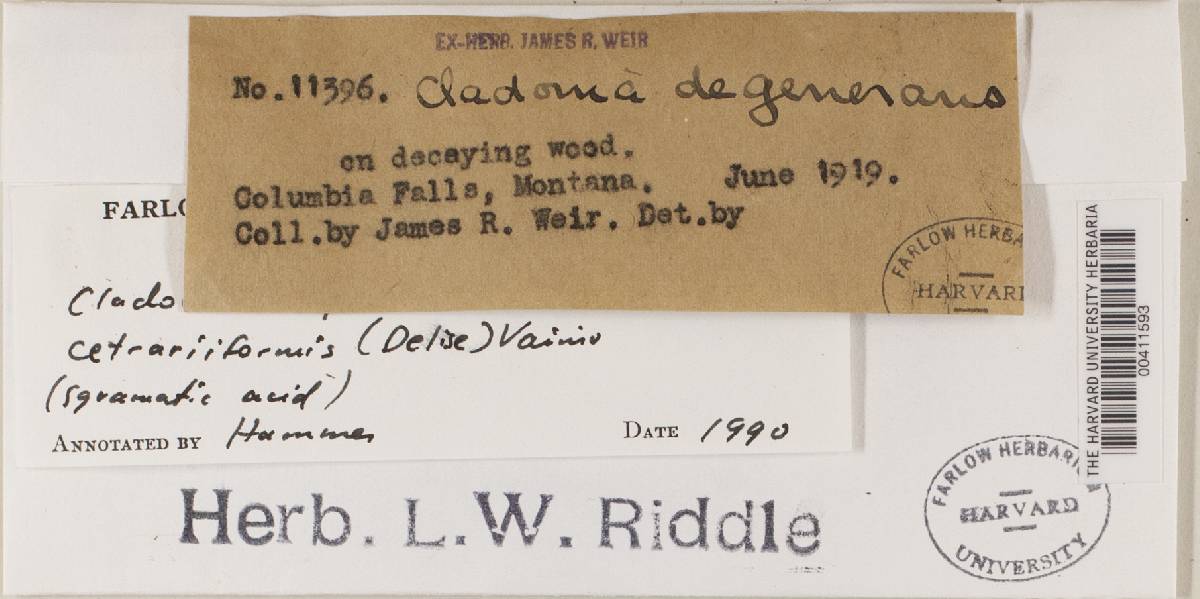 EX-HERB. JAMES R. WEIR
No.11396. Cladonia degenerans
on decaying wood.
Columbia Falls, Montana. June 1919.
Coll.by James R. Weir. Det.by
FARLOW HERBA
HARVARD
FARLO
Clado
cetrariiformis (Delise) Vainio
(sqramatic acid)
ANNOTATED BY Hammer
DATE 1990
Herb. L.W. Riddle
FARLOW HERBARIUM
HARVARD
UNIVERSITY
THE HARVARD UNIVERSITY HERBARIA
00411593